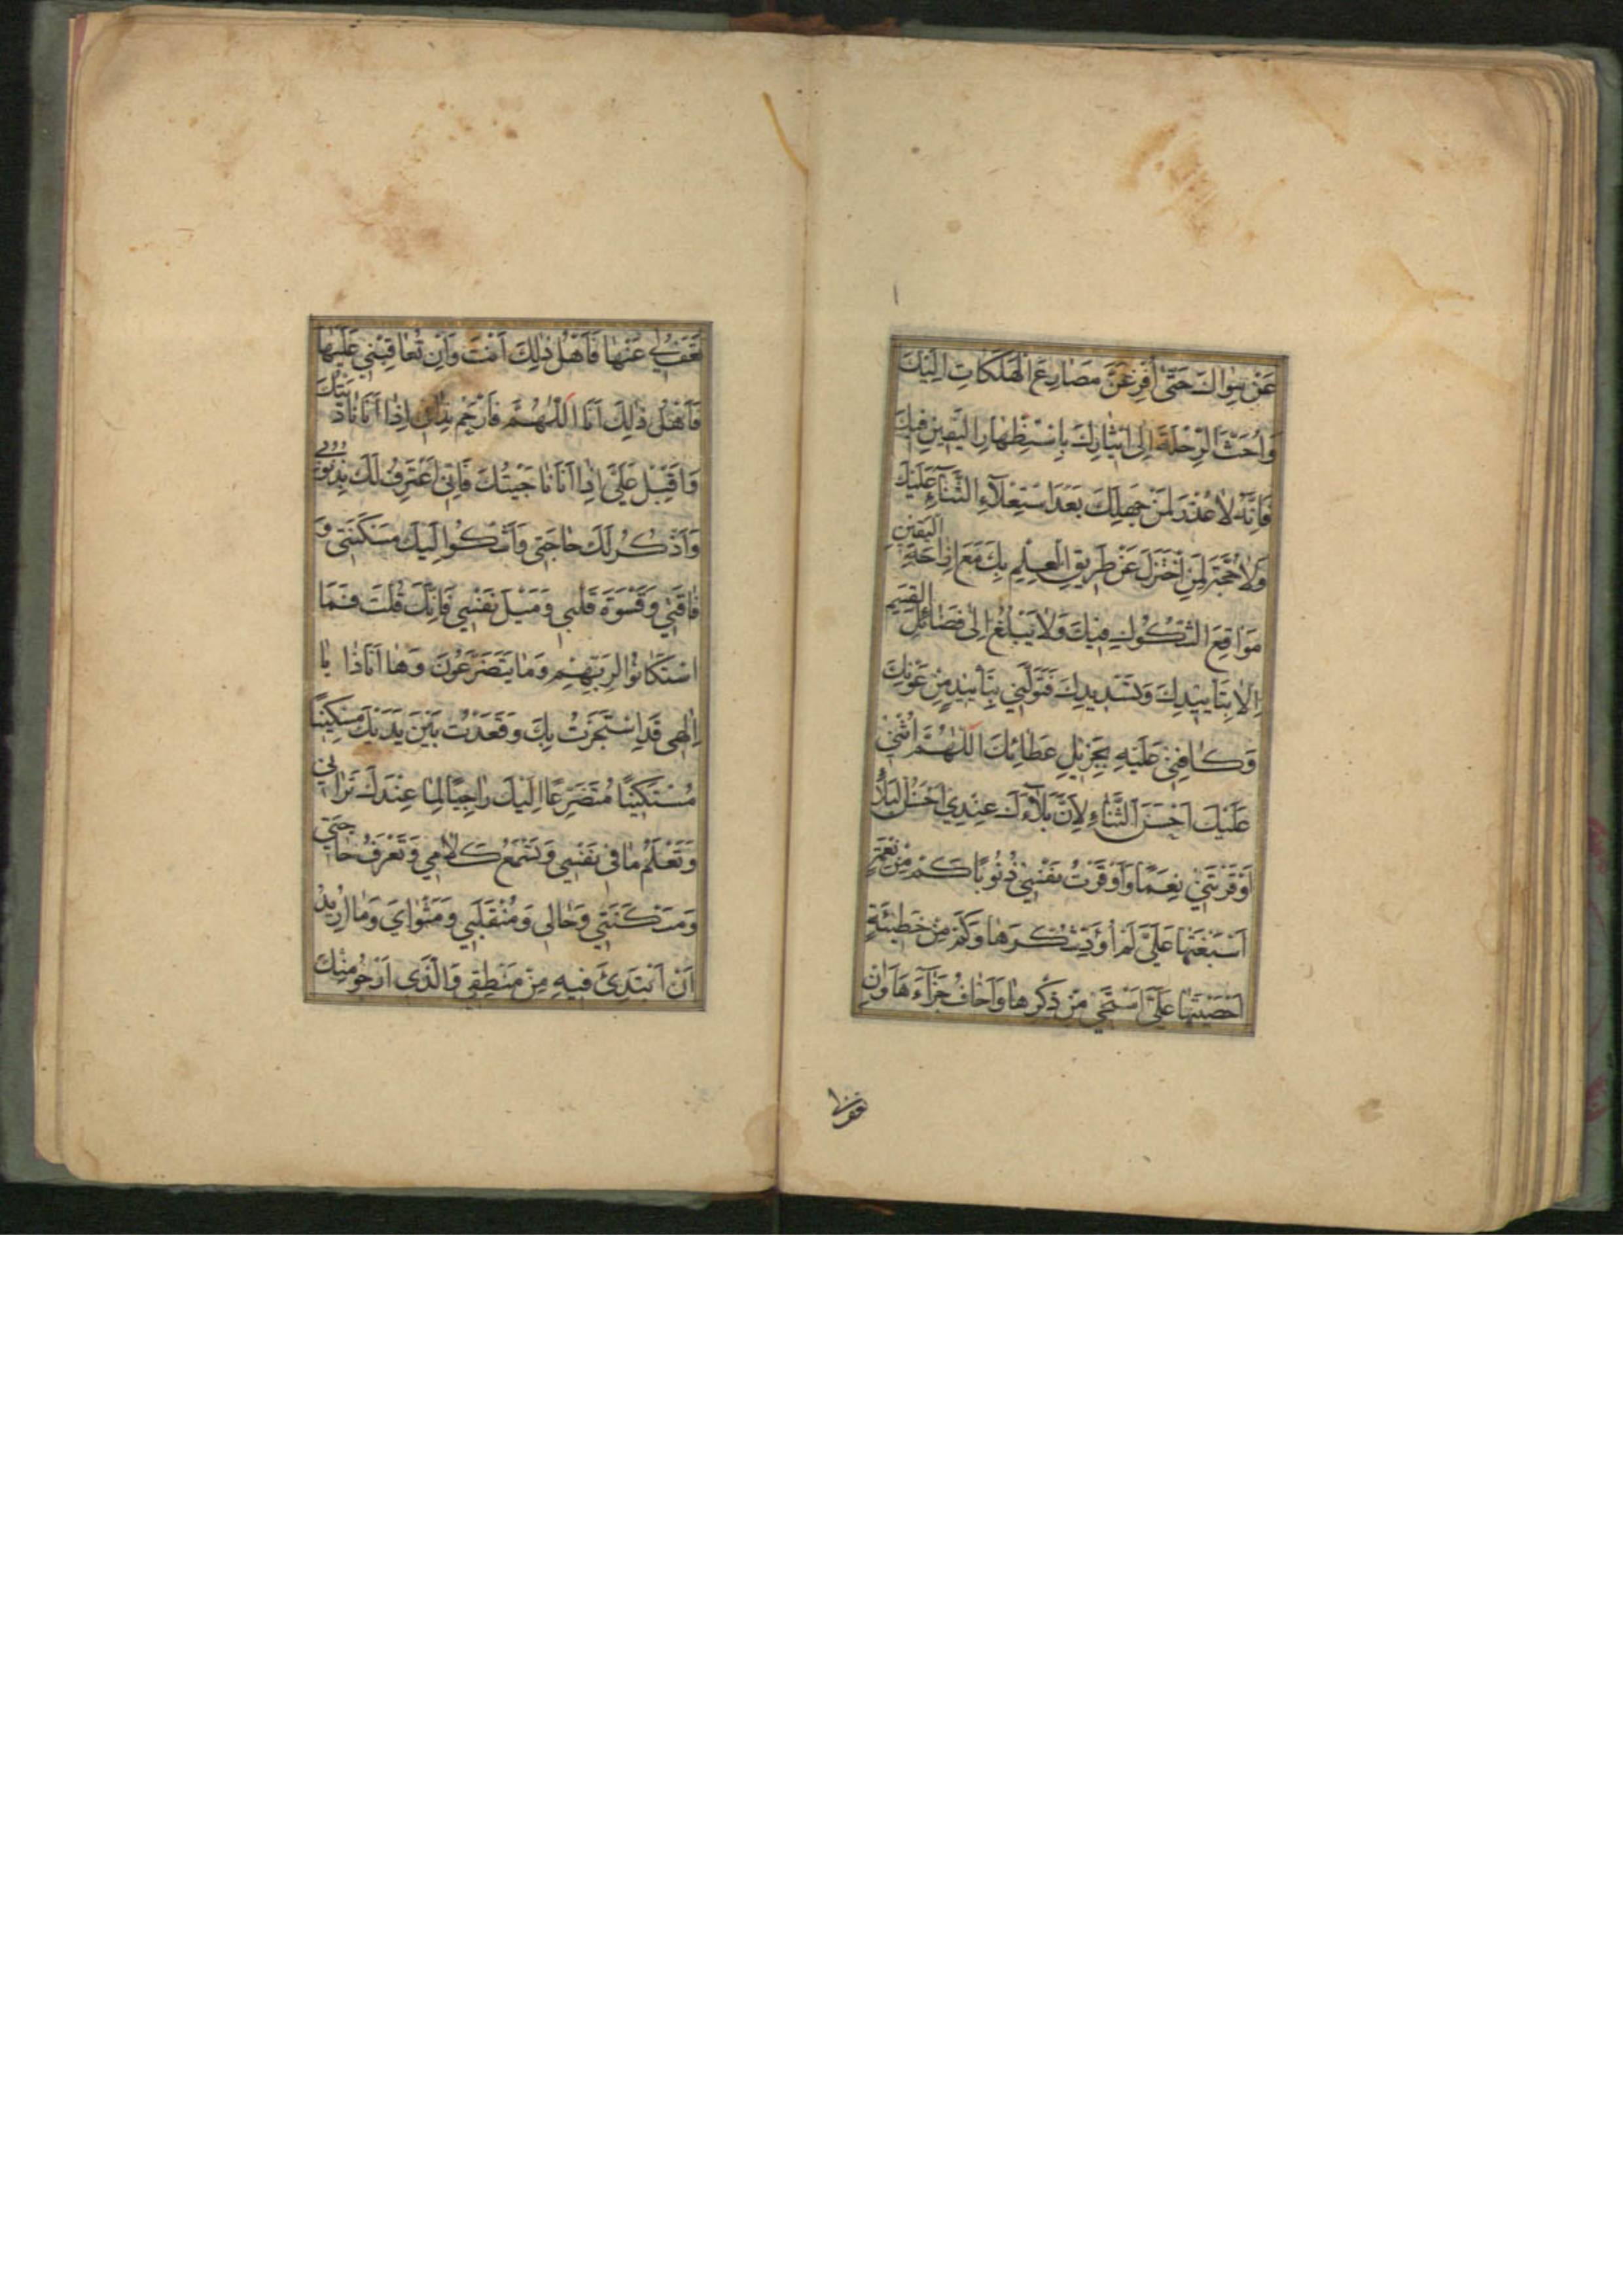 عَنْ سِوٰاكَ حَتّٰى اَفِرَّ عَنْ مَصٰارِعِ الْهَلَكٰاتِ اِلَيْكَ
وَاَحُثَّ الرِّحْلَةَ اِلٰى ايثٰارِكَ بِاسْتِظْهٰارِ الْيَقينِ فيكَ
فَاِنَّهُ لاٰ عُذْرَ لِمَنْ جَهِلَكَ بَعْدَ اسْتِعْلاٰءِ الثَّنٰآءِ عَلَيْكَ
وَلاٰ حُجَّةَ لِمَنِ اخْتَزَلَ عَنْ طَريقِ الْعِلْمِ بِكَ مَعَ اِزٰاحَةِ الْيَقينِ
مَوٰاقِعَ الشُّكُوكِ فيكَ وَلاٰ يَبْلُغُ اِلٰى فَضٰائِلِ الْقِسَمِ
اِلاّٰ بِتَأْييدِكَ وَتَسْديدِكَ فَتَوَلَّني بِتَأْييدٍ مِنْ عَوْنِكَ
وَكٰافِني عَلَيْهِ بِجَزيلِ عَطٰائِكَ اَللّٰهُمَّ اُثْني
عَلَيْكَ اَحْسَنَ الثَّنٰاءِ لِاَنَّ بَلاٰءَكَ عِنْدي اَحْسَنُ الْبَلاٰءِ
اَوْقَرْتَني نِعَمًا وَاَوْقَرْتُ نَفْسي ذُنُوبًا كَمْ مِنْ نِعْمَةٍ
اَسْبَغْتَهٰا عَلَيَّ لَمْ اُؤَدِّ شُكْرَهٰا وَكَمْ مِنْ خَطيئَةٍ
اَحْصَيْتَهٰا عَلَيَّ اَسْتَحْيي مِنْ ذِكْرِهٰا وَاَخٰافُ جَزٰآءَهٰا وَاِنْ
تَعْفُ لي عَنْهٰا فَاَهْلُ ذٰلِكَ اَنْتَ وَاِنْ تُعٰاقِبْني عَلَيْهٰا
فَاَهْلُ ذٰلِكَ اَنَا اَللّٰهُمَّ فَارْحَمْ نِدٰائي اِذٰا اَنَا نٰادَيْتُكَ
وَاَقْبِلْ عَلَيَّ اِذٰا اَنَا نٰاجَيْتُكَ فَاِنّي اَعْتَرِفُ لَكَ بِذُنُوبي
وَاَذْكُرُ لَكَ حٰاجَتي وَاَشْكُو اِلَيْكَ مَسْكَنَتي وَ
فٰاقَتي وَقَسْوَةَ قَلْبي وَمَيْلَ نَفْسي فَاِنَّكَ قُلْتَ فَمَا
اسْتَكٰانُوا لِرَبِّهِمْ وَمٰا يَتَضَرَّعُونَ وَهٰا اَنَا ذٰا يٰا
اِلٰهي قَدِ اسْتَجَرْتُ بِكَ وَقَعَدْتُ بَيْنَ يَدَيْكَ مِسْكينًا
مُسْتَكينًا مُتَضَرِّعًا اِلَيْكَ رٰاجِيًا لِمٰا عِنْدَكَ تَرٰاني
وَتَعْلَمُ مٰا في نَفْسي وَتَسْمَعُ كَلاٰمي وَتَعْرِفُ حٰاجَتي
وَمَسْكَنَتي وَحٰالي وَمُنْقَلَبي وَمَثْوٰايَ وَمٰا اُريدُ
اَنْ اَبْتَدِئَ فيهِ مِنْ مَنْطِقي وَالَّذي اَرْجُو مِنْكَ